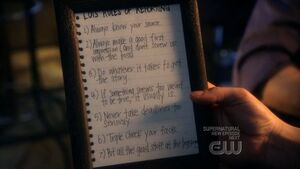 LOIS' RULES OF REPORTING
1) Always know your source.
2) Always make a good first
impression (and don't screw up
with the boss)
3) Do whatever it takes to get
the story.
4) If something seems too weird
to be true, it usually is.
5) Never take deadlines too
seriously.
6) Triple check your facts.
7) Put all the good stuff at the beginning
SUPERNATURAL
NEW EPISODE
NEXT
CW